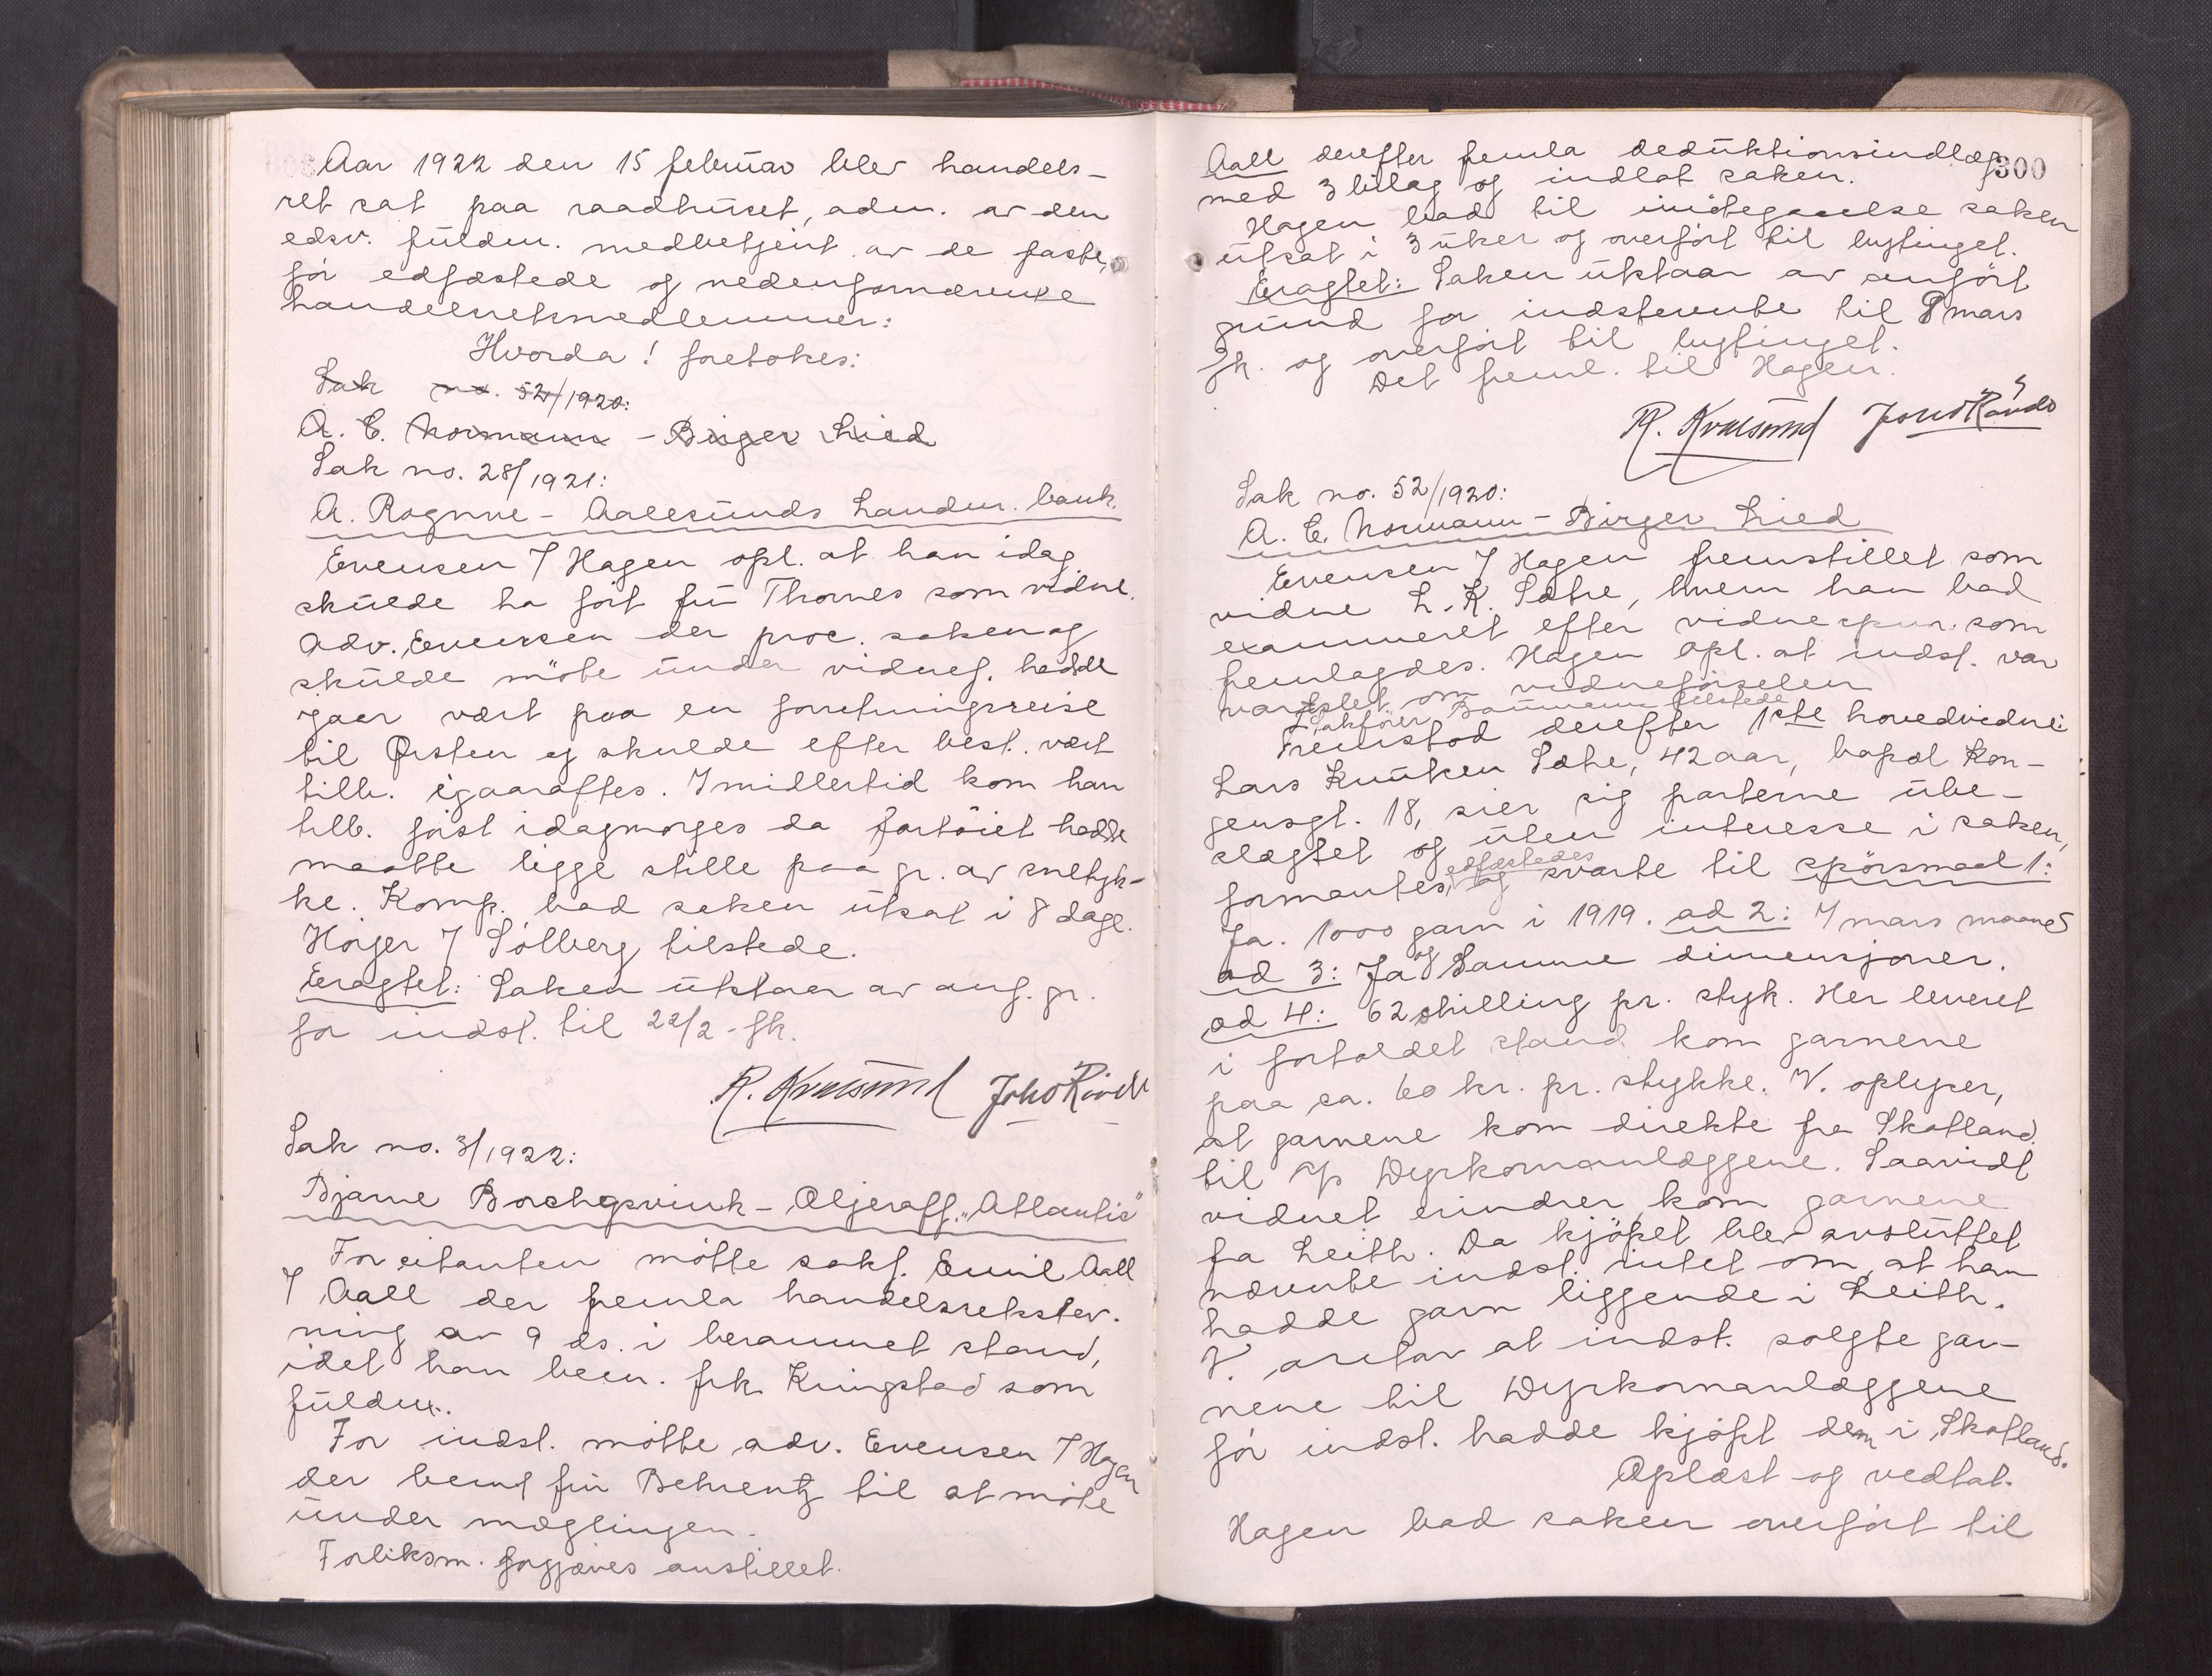 Aar 1922 den 15 februar blev handels-
ret sat paa raadhuset, adm. av den
edsv. fuldm. medbetjent av de faste,
før edfæstede og nedenfornævnte
handelsretsmedlemmer:
Hvorda! foretokes:
Sak no. 52/1920:
A. E. Normann - Birger Lied
Sak no. 28/1921:
A. Rognne - Aalesunds Landm. bank.
Evensen / Hagen opl. at han idag
skulde ha ført fru Thornes som vidne.
Adv. Evensen der proc. saken og
skulde møte under vidnef. hadde
igaar vært paa en forretningsreise
til Ørsten og skulde efter best. vært
tilb. igaaraftes. Imidlertid kom han
tilb. først idagmorges da fartøiet hadde
maatte ligge stille paa gr. av snetyk-
ke. Komp. bad saken utsat i 8 dage.
Höijer / Solberg tilstede.
Eragtet: Saken utstaar av anf. gr.
for indst. til 22/2 - fk.
R. Kvalsund
Sak no. 3/1922:
Bjarne Borchgrevink - Oljeraff. "Atlantic"
For citanten møtte sakf. Emil Aall
/ Aall der fremla handelsretsstev-
ning av 9 ds. i berammet stand,
idet han bem. frk. Kringstad som
fuldm.
For indst. møtte adv. Evensen / Hagen
der bemf fru Behrentz til at møte
under mæglingen.
Forliksm. forgjæves anstillet.
300
Aall derefter femla deduktionsindlæg
med 3 bilag og indlot saken.
Hagen bad til imøtegaaelse saken
utsat i 3 uker og overført til bytinget.
Eragtet: Saken utstaar av anført
grund for indstevnte til 8 mars
fk. og overført til bytinget.
Det freml. til Hagen.
R. Kvalsund
Sak no. 52/1920:
A. E. Normann - Birger Lied
Evensen / Hagen fremstillet som
vidne L. K. Sætre, hvem han bad
examineret efter vidnespm. som
fremlagdes. Hagen opl. at indst. var
varslet om vidneførselen
Sakfører Baumann tilstede
Fremstod derefter 1ste hovedvidne:
Lars Knutsen Sætre, 42 aar, bopæl Kon-
gensgt. 18, sier sig parterne ube-
slægtet og uten interesse i saken,
formantes, edfæstedes og svarte til spørsmaal 1:
Ja. 1000 garn i 1919. ad 2: I mars maaned
ad 3: Ja og Samme dimensjoner.
ad 4: 62 shilling pr. styk. Her leveret
i fortoldet stand kom garnene
paa ca. 60 kr. pr. stykke. V. oplyser,
at garnene kom direkte fra Skotland
til A/S Dyrkornanlæggene. Saavidt
vidnet erindrer kom garnene
fra Leith. Da kjøpet blev avsluttet
nævnte indst. intet om, at han
hadde garn liggende i Leith.
V. antar at indst. solgte gar-
nene til Dyrkornanlæggene
før indst. hadde kjøpt dem i Skotland.
Oplæst og vedtat.
Hagen bad saken overført til